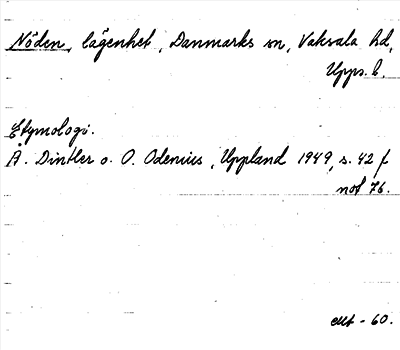 Nöden, lägenhet, Danmarks sn, Vaksala hd,
Upps. l.
Etymologi.
Å. Dintler o. O. Odenius, Uppland 1949, s. 42 f
not 76.
-60.